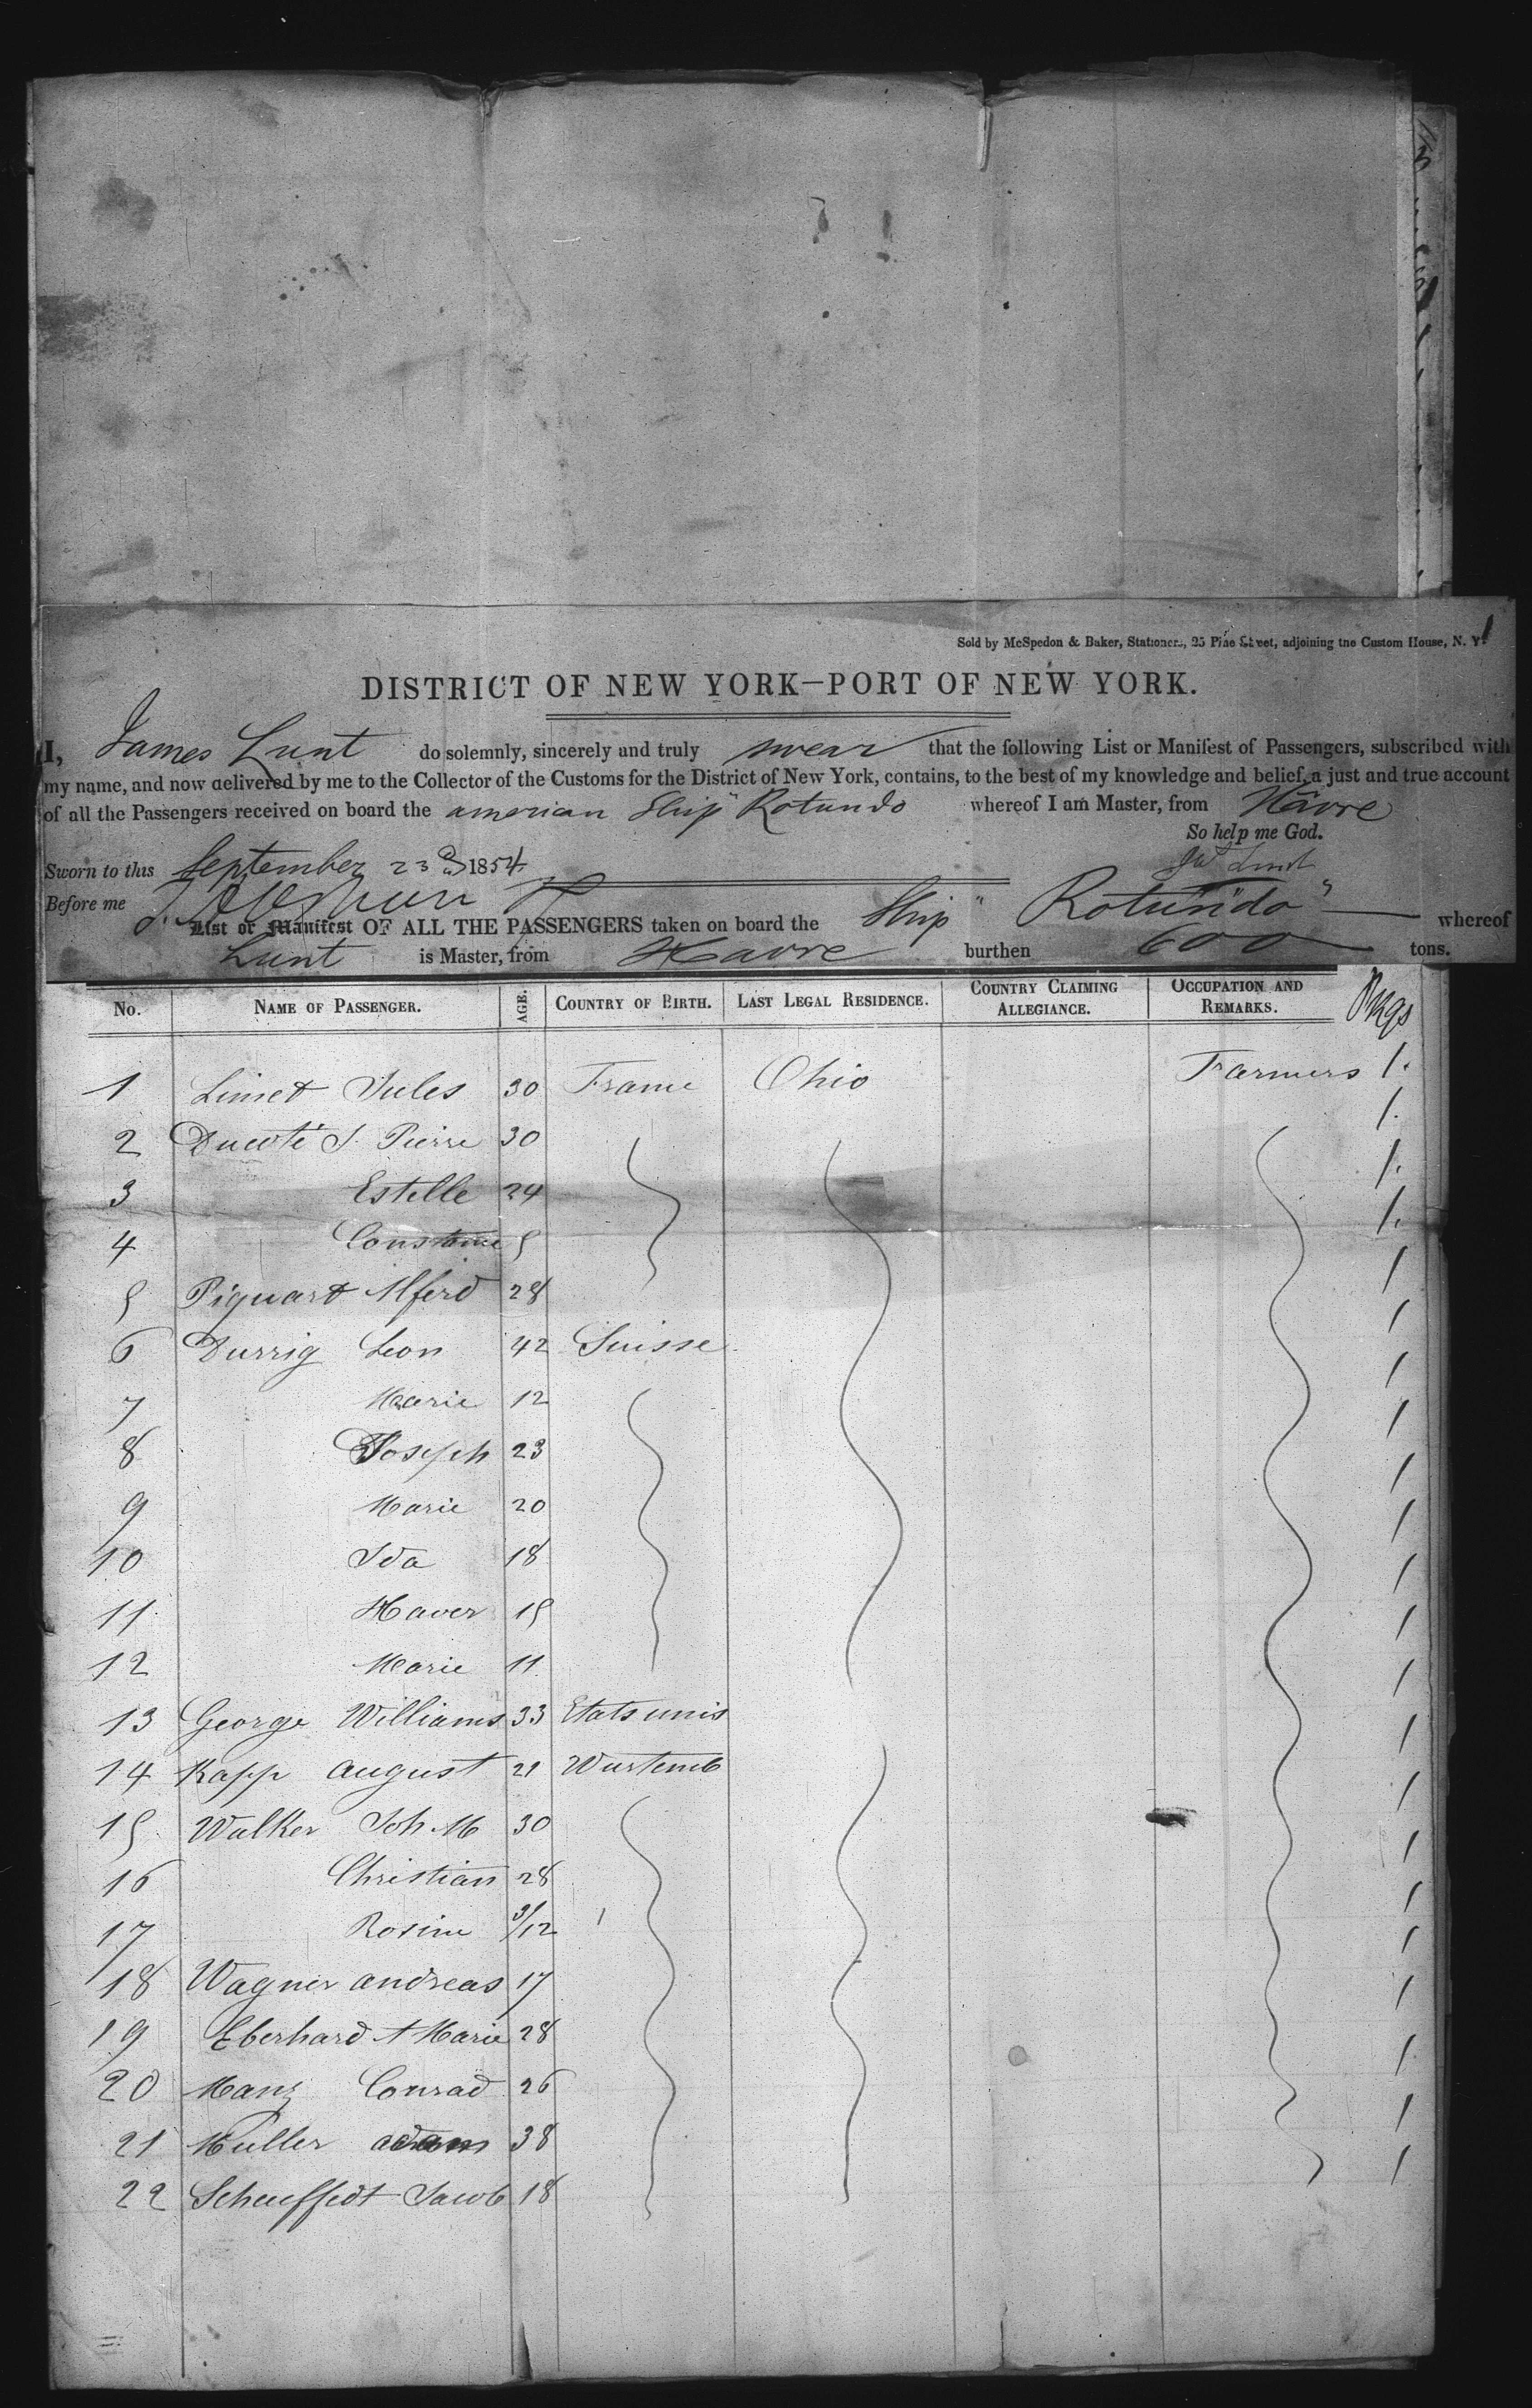 Sold by McSpedon & Baker, Stationers, 25 Pine Street, adjoining the Custom House, N. Y.
DISTRICT OF NEW YORK—PORT OF NEW YORK.
I, James Lunt do solemnly, sincerely and truly swear that the following List or Manifest of Passengers, subscribed with
my name, and now delivered by me to the Collector of the Customs for the District of New York, contains, to the best of my knowledge and belief, a just and true account
of all the Passengers received on board the american Ship "Rotundo whereof I am Master, from Havre
So help me God.
Sworn to this September 23d 1854
Lunt
Before me
List or Manifest OF ALL THE PASSENGERS taken on board the Ship "Rotundo" whereof
Lunt is Master, from Havre burthen 600 tons.
No. NAME OF PASSENGER. AGE. COUNTRY OF BIRTH. LAST LEGAL RESIDENCE. COUNTRY CLAIMING ALLEGIANCE. OCCUPATION AND REMARKS. Pkgs
1 Limet Jules 30 France Ohio Farmers 1.
2 Ducoté J. Pierre 30 1.
3 Estelle 24 1.
4 Constance 5 1.
5 Piquart Alferd 28 1
6 Durrig Leon 42 Suisse 1
7 Marie 12 1
8 Joseph 23 1
9 Marie 20 1
10 Ida 18 1
11 Xaver 15 1
12 Marie 11 1
13 George Williams 33 Etats unis 1
14 Kapp august 21 Wurtemb 1
15 Walker Joh M 30 1
16 Christian 28 1
17 Rosine 3/12 1
18 Wagner andreas 17 1
19 Eberhard A Marie 28 1
20 Manz Conrad 26 1
21 Muller adam 38 1
22 Scheuffedt Jacob 18 1